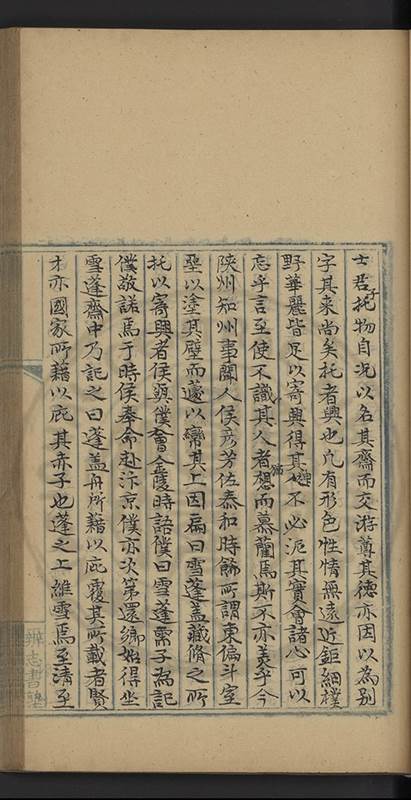 士君子托物自况以名其齋而交游尊其德亦因以為别
字其来尚矣托者興也凡有形色性情無遠近鉅細樸
野華麗皆足以寄興得其神不必泥其實會諸心可以
忘乎言至使不識其人者想而慕藺焉斯不亦美乎今
陝州知州事閩人侯彦芳佐泰和時飾所謂東偏斗室
堊以塗其壁而蘧以欒其上因扁曰雪蓬蓋藏脩之所
托以寄興者侯與僕會金陵時語僕曰雪蓬需子為記
僕敬諾焉于時侯奉命赴汴京僕亦次第還鄉始得坐
雪蓬齋中乃記之曰蓬蓋舟所藉以庇覆其所載者賢
才亦國家所藉以庇其赤子也蓬之上維雪焉至清至